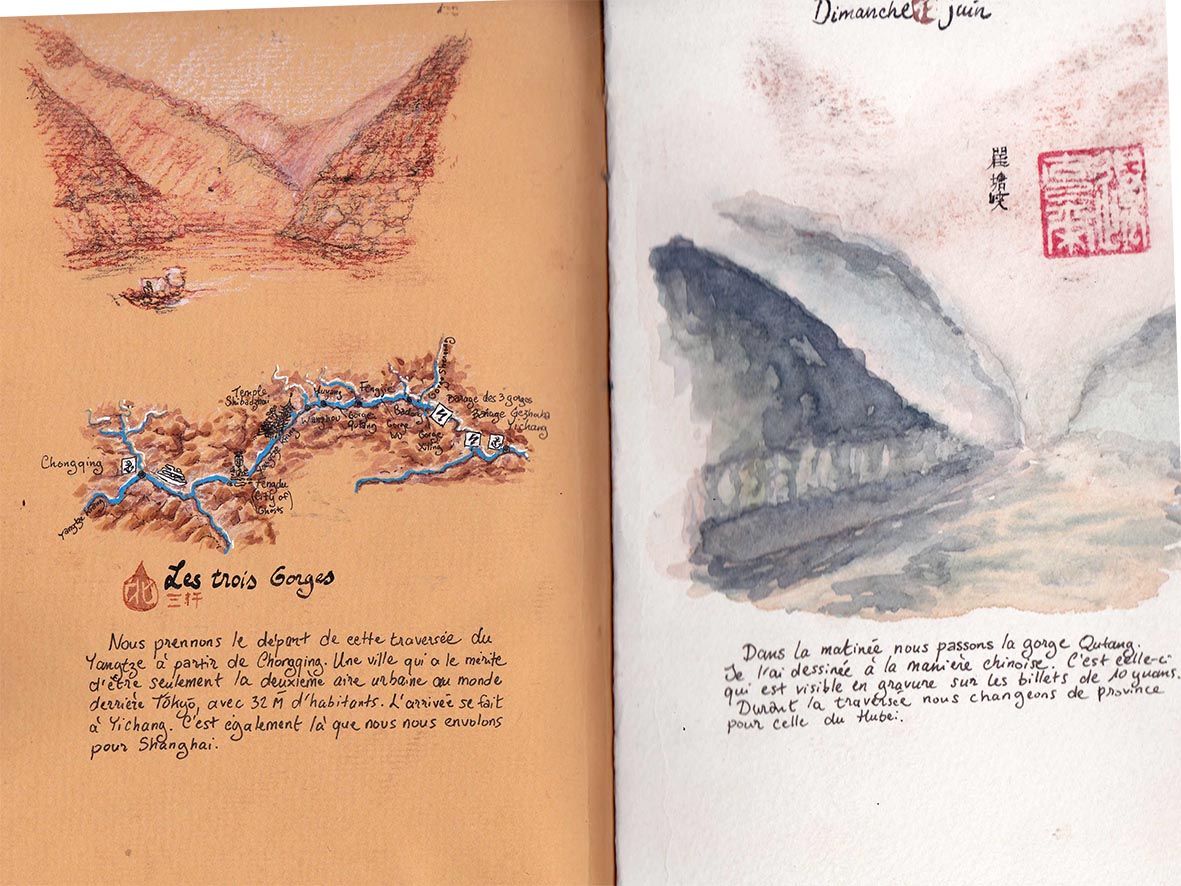 Chongqing
Yangtze River
Temple
Shibaozhai
Fengdu
(City of)
Ghosts
Yunyang
Wanzhou
Fengjie
Gorge
Qutang
Badong
Gorge
Wu
Gorge
Xiling
Barrage des 3 gorges
Barrage Gezhouba
Yichang
Les trois Gorges
三
Nous prennons le départ de cette traversée du
Yangtze à partir de Chongqing. Une ville qui a le mérite
d'être seulement la deuxième aire urbaine au monde
derrière Tōkyō, avec 32 M d'habitants. L'arrivée se fait
à Yichang. C'est également là que nous nous envolons
pour Shanghai.
Dimanche juin
瞿塘峡
Dans la matinée nous passons la gorge Qutang.
Je l'ai dessinée à la manière chinoise. C'est celle-ci
qui est visible en gravure sur les billets de 10 yuans.
Durant la traversée nous changeons de province
pour celle du Hubei.